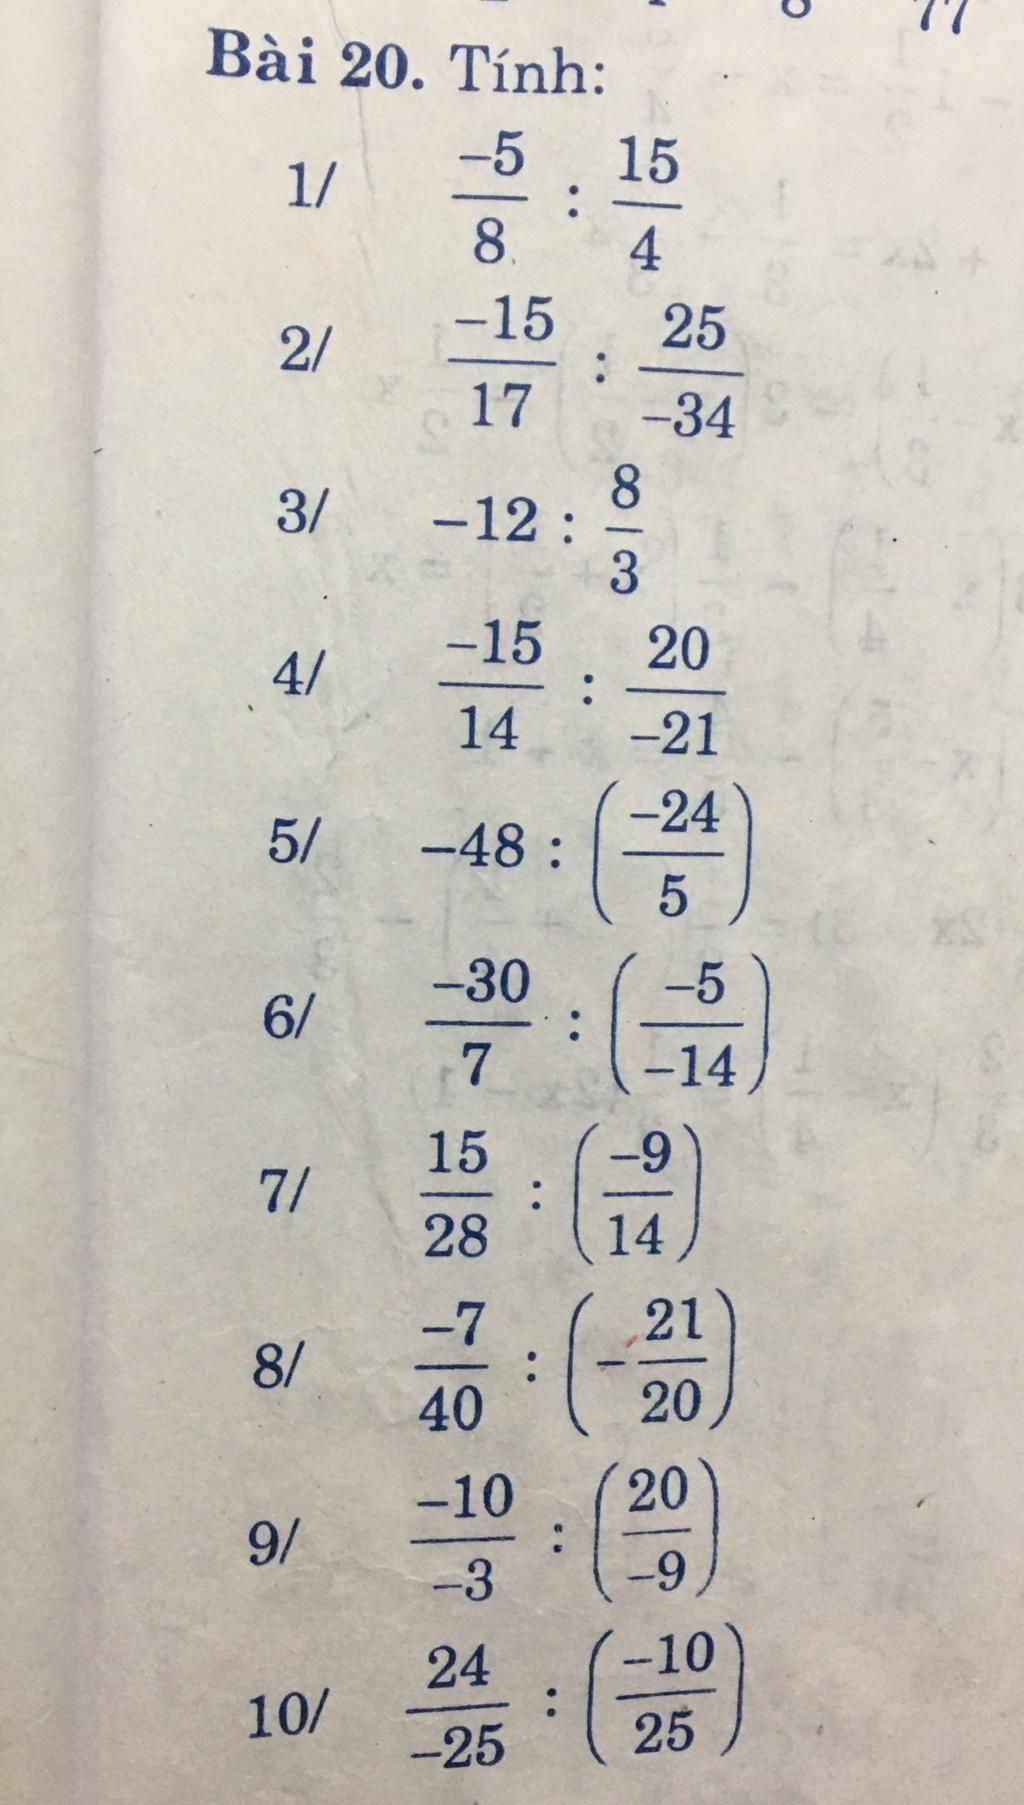 8 77
Bài 20. Tính:
1/ -5/8 : 15/4
2/ -15/17 : 25/-34
3/ -12 : 8/3
4/ -15/14 : 20/-21
5/ -48 : (-24/5)
6/ -30/7 : (-5/-14)
7/ 15/28 : (-9/14)
8/ -7/40 : (-21/20)
9/ -10/-3 : (20/-9)
10/ 24/-25 : (-10/25)